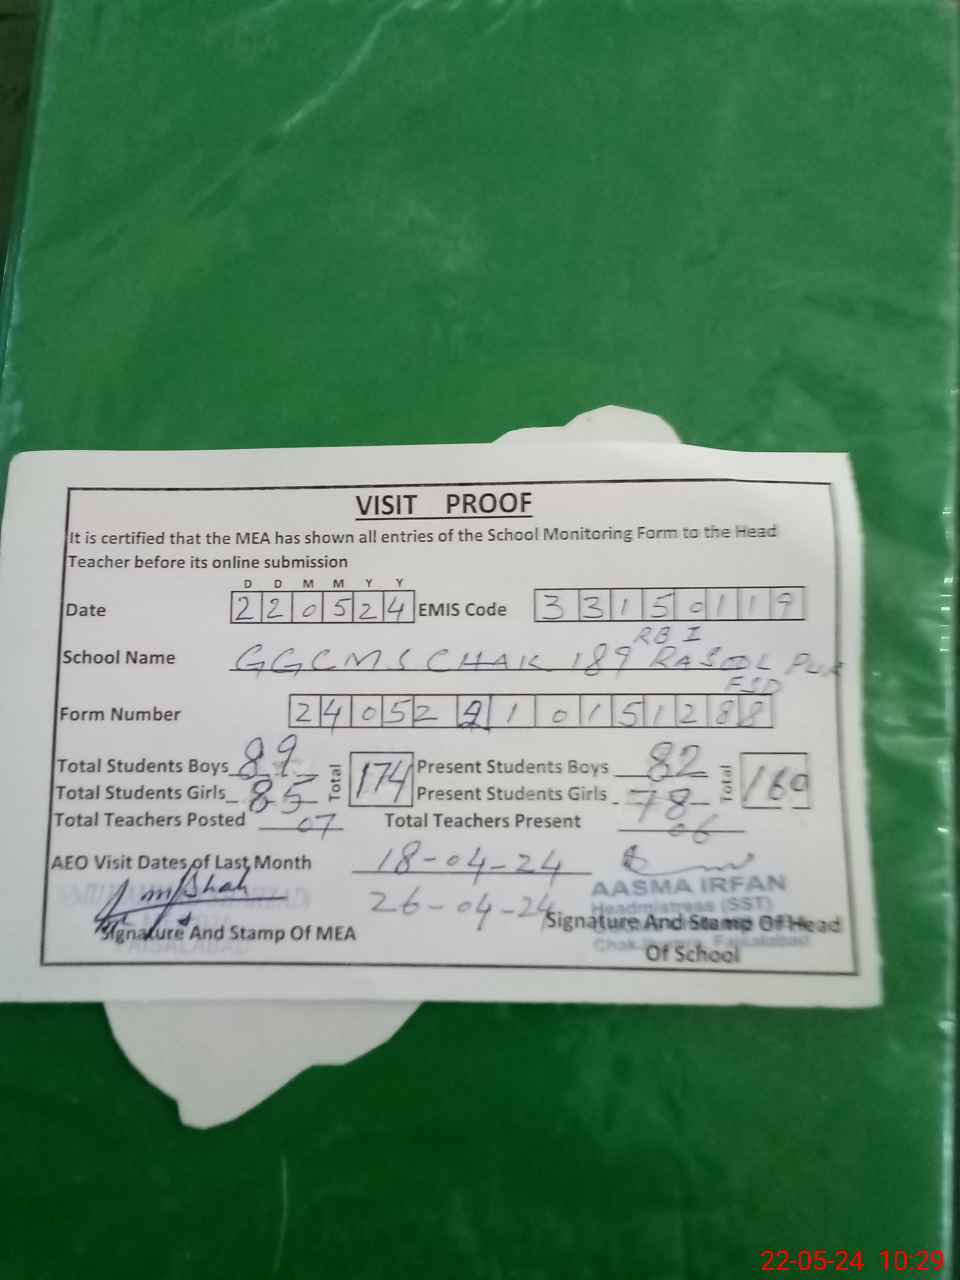 VISIT PROOF
It is certified that the MEA has shown all entries of the School Monitoring Form to the Head
Teacher before its online submission
D D M M Y Y
Date 220524 EMIS Code 33150119
RB I
School Name GGCMS CHAK 189 RASOOL PUR
FSD
Form Number 24052210151288
Total Students Boys 89 Total 174 Present Students Boys 82 Total 160
Total Students Girls 85 Present Students Girls 78
Total Teachers Posted 07 Total Teachers Present 06
AEO Visit Dates of Last Month 18-04-24
26-04-24
AASMA IRFAN
Headmistress (SST)
Signature And Stamp Of MEA Signature And Stamp Of Head
Of School
22-05-24 10:29